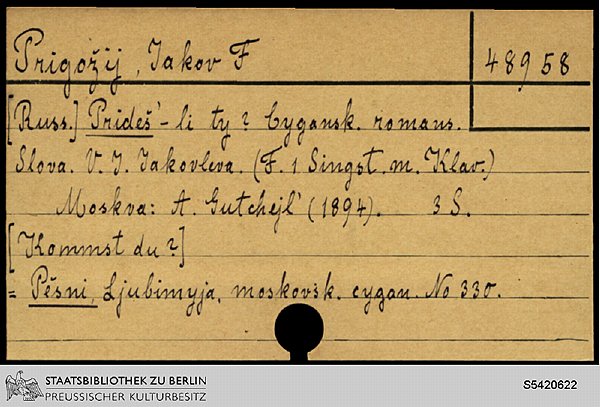 Prigožij, Jakov F
48958
[Russ.] Prideš'-li ty? Cygansk. romans.
Slova. V. I. Jakovleva. (F. 1 Singst. m. Klav.)
Moskva: A. Gutchejl' (1894). 3 S.
[Kommst du?]
= Pěsni, Ljubimyja, moskovsk. cygan. No 330.
STAATSBIBLIOTHEK ZU BERLIN
PREUSSISCHER KULTURBESITZ
S5420622